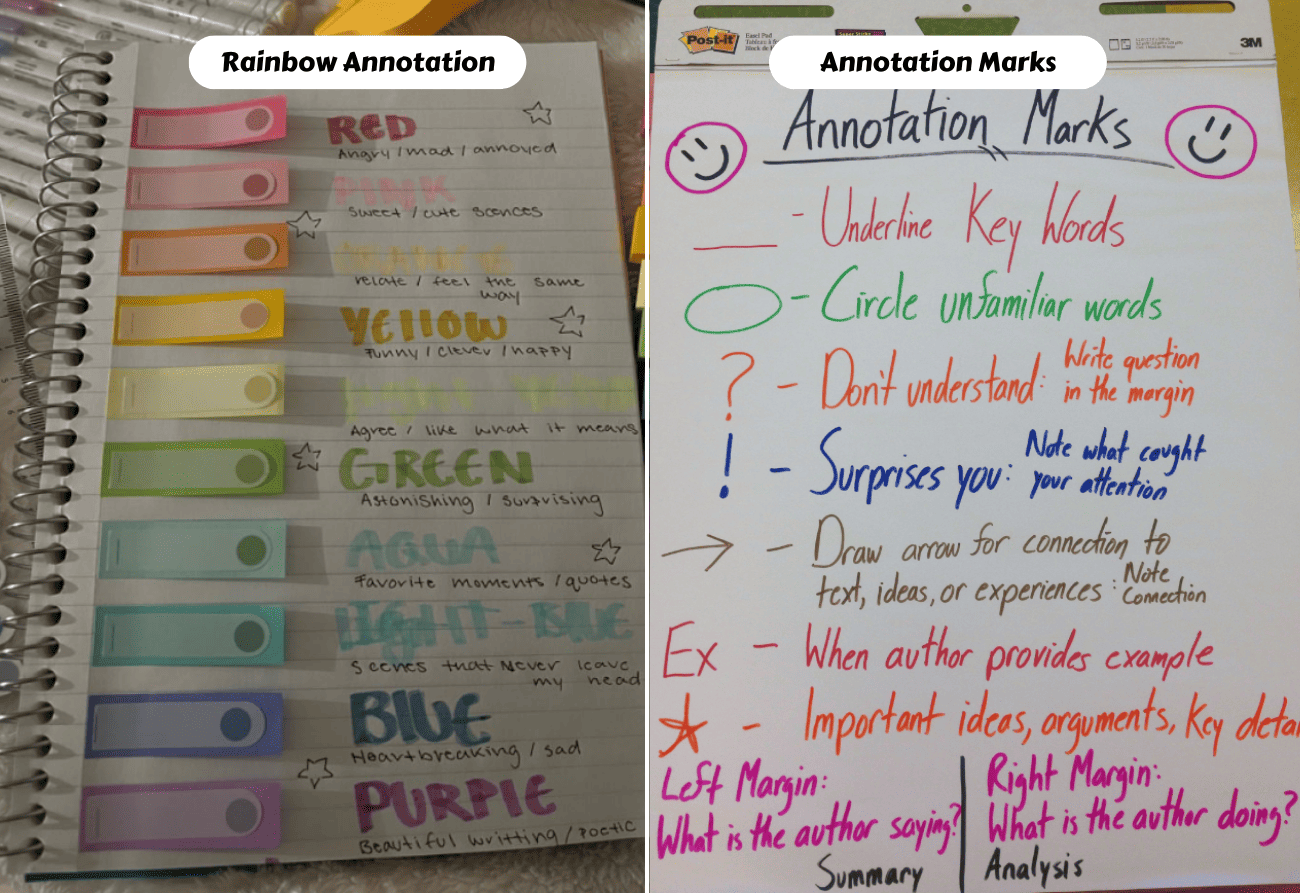 Rainbow Annotation
RED
Angry / mad / annoyed
PINK
sweet / cute scences
ORANGE
relate / feel the same
way
YEllOW
Funny / clever / happy
LIGHT YEllOW
Agree / like what it means
GREEN
Astonishing / surprising
AQUA
Favorite moments / quotes
LIGHT-BlUE
Scenes that Never leave
my head
BlUE
Heartbreaking / sad
PURPlE
Beautiful writting / Poetic
Annotation Marks
Post-it
Easel Pad
3M
Annotation Marks
- Underline Key Words
- Circle unfamiliar words
? - Don't understand: Write question
in the margin
! - Surprises you: Note what caught
your attention
→ - Draw arrow for connection to
text, ideas, or experiences: Note
Connection
Ex - When author provides example
- Important ideas, arguments, Key detai
Left Margin:
What is the author saying?
Summary
Right Margin:
What is the author doing?
Analysis